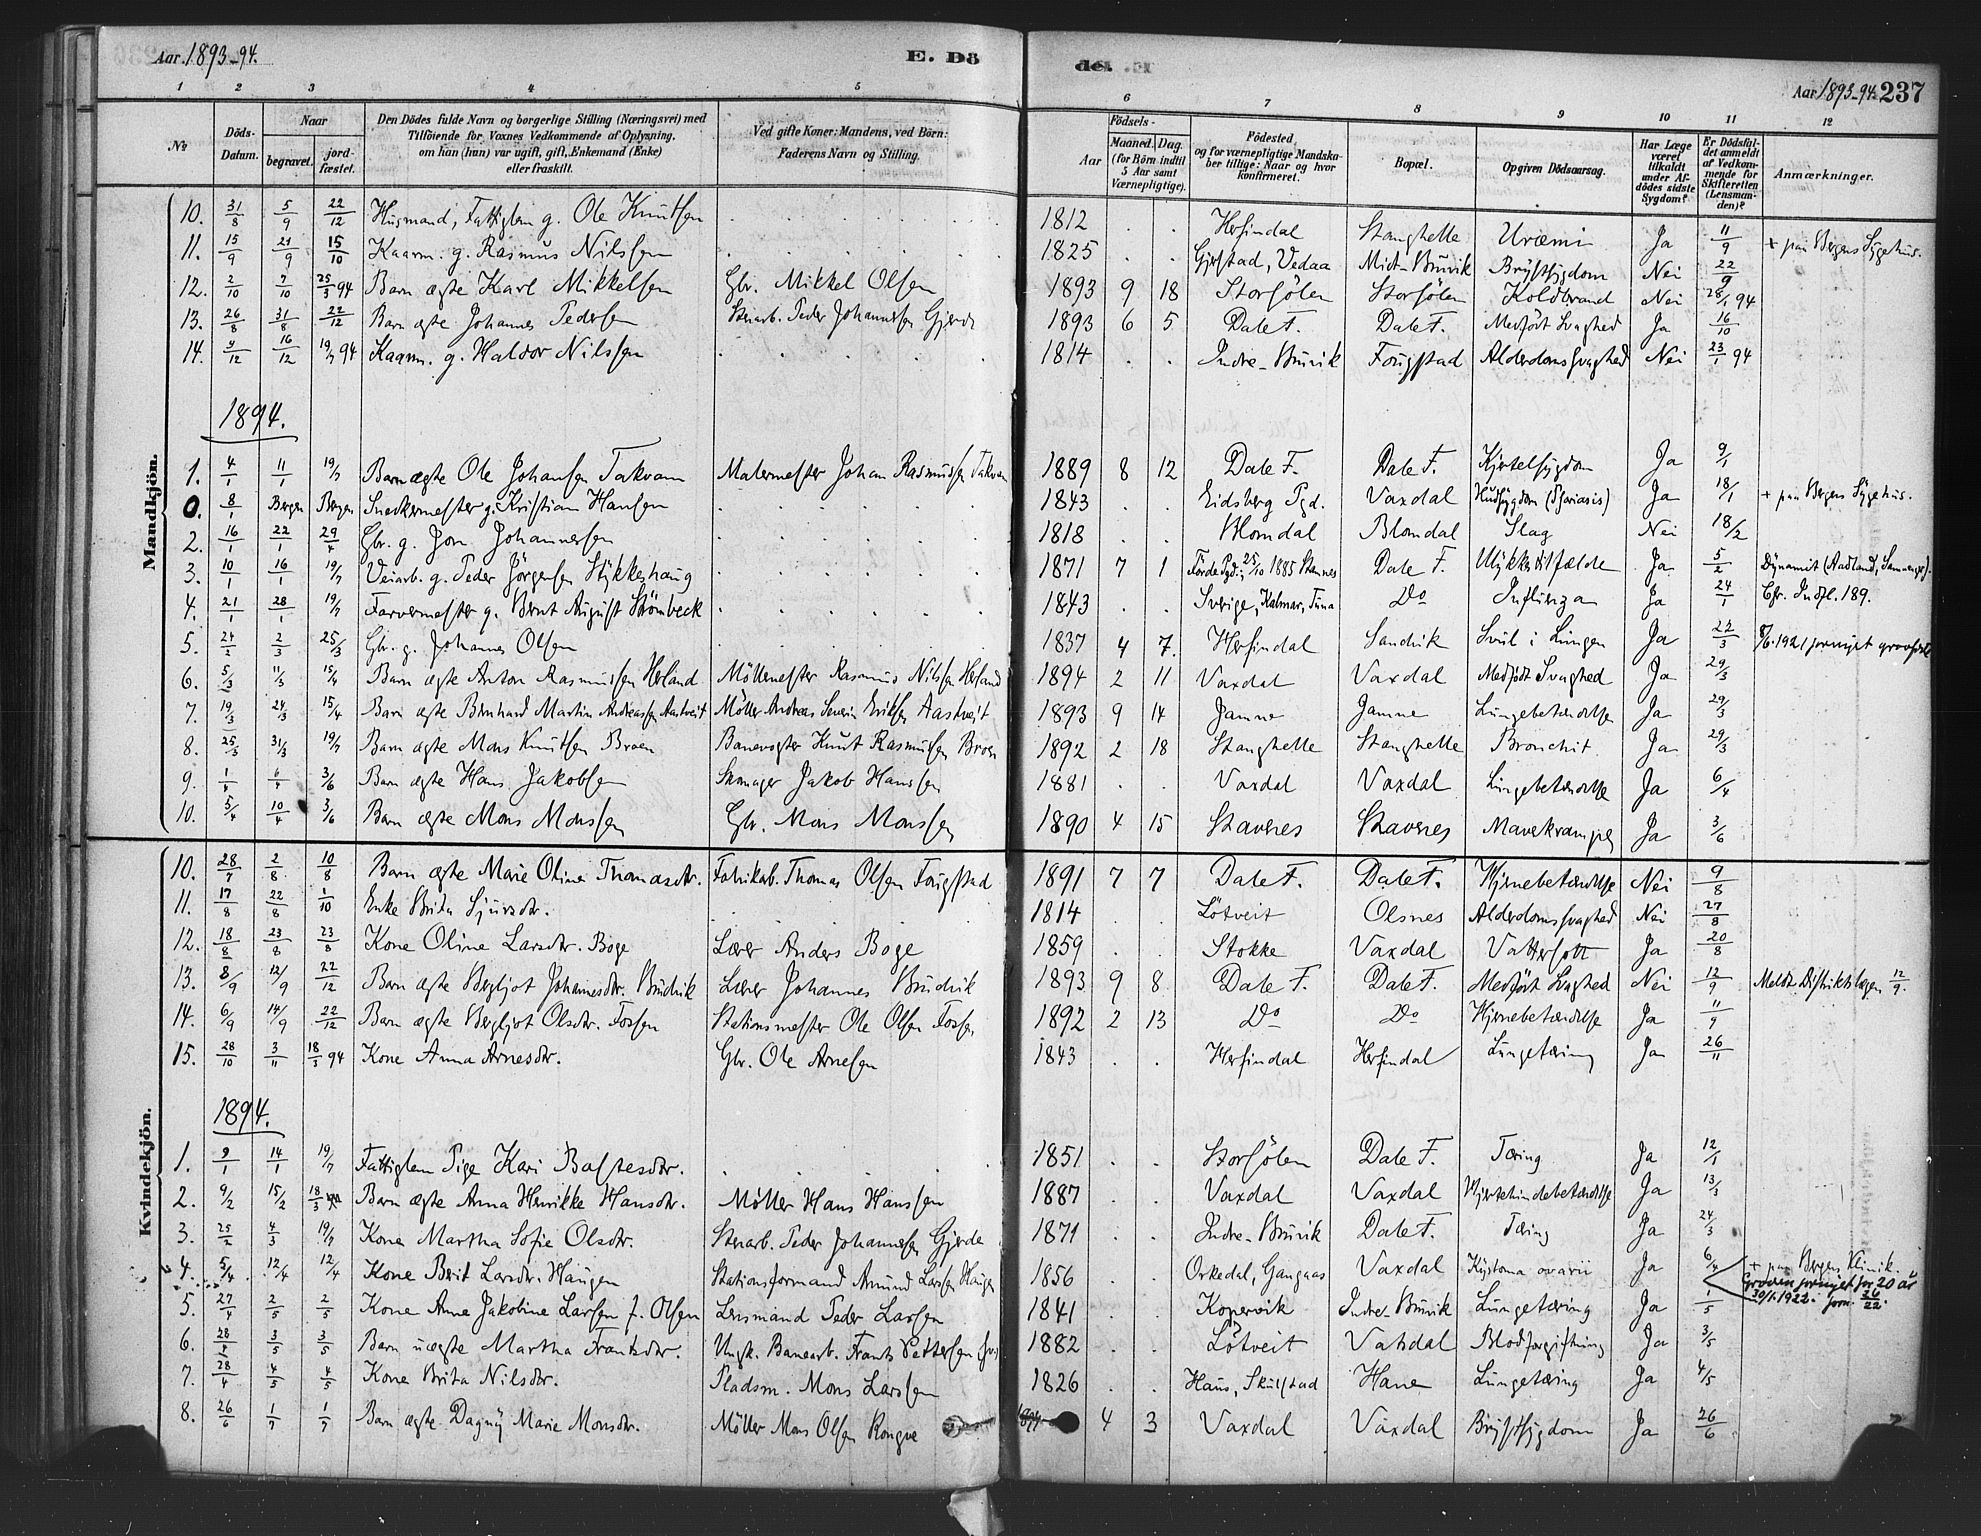 Aar 1893-94. E. Dö de. Aar 1893-94. 237
1 2 3 4 5 6 7 8 9 10 11 12
No Döds-Datum. Naar begravet. jordfæstet. Den Dödes fulde Navn og borgerlige Stilling (Næringsvei) med Tilföiende for Voxnes Vedkommende af Oplysning, om han (hun) var ugift, gift, Enkemand (Enke) eller fraskilt. Ved gifte Koner: Mandens, ved Börn: Faderens Navn og Stilling. Födsels- Aar Maaned. Dag. (for Börn indtil 5 Aar samt Værnepligtige). Födested, og for værnepligtige Mandskaber tillige: Naar og hvor konfirmeret. Bopæl. Opgiven Dödsaarsag. Har Læge været tilkaldt under Afdödes sidste Sygdom? Er Dödsfaldet anmeldt af Vedkommende for Skifteretten (Lensmanden)? Anmærkninger.
Mandkjön.
10. 31/8 5/9 22/12 Husmand, Fattiglem g. Ole Knutsen 1812 Herfindal Stanghelle Uræmi Ja 11/9
11. 15/9 21/9 15/10 Kaarm. g. Rasmus Nilsen 1825 Gjerstad, Vedaa Midt-Bruvik Brystsygdom Nei 22/9 + paa Bergens Sygehus.
12. 2/10 7/10 25/3 94 Barn ægte Karl Mikkelsen Gbr. Mikkel Olsen 1893 9 18 Storsölen Storsölen Koldbrand Nei 28/1 94
13. 26/8 31/8 22/12 Barn ægte Johannes Pedersen Stenarb. Peder Johannesen Gjerde 1893 6 5 Dale F. Dale F. Medfödt Svaghed Ja 16/10
14. 9/12 16/12 19/7 94 Kaarm. g. Haldor Nilssen 1814 Indre-Bruvik Fougstad Alderdomssvaghed Nei 23/1 94
1894.
1. 4/1 11/1 19/7 Barn ægte Ole Johansen Takvam Malermester Johan Rasmussen Takvam 1889 8 12 Dale F. Dale F. Kjertelsygdom Ja 9/1
0. 8/1 Bergen Bergen Snedkermester g. Kristian Hansen 1843 Eidsberg Pgd. Vaxdal Hudsygdom (Psoriasis) Ja 18/1 + paa Bergens Sygehus.
2. 16/1 22/1 29/4 Gbr. g. Jon Johannesen 1818 Blomdal Blomdal Slag Nei 18/2
3. 10/1 16/1 19/7 Veiarb. g. Peder Jörgensen Stykkeshaug 1871 7 1 Förde Pgd.; 25/10 1885 Dale F. Ulykkestilfælde Ja 5/2 Dynamit (Aadland, Samnanger).
4. 21/1 28/1 19/7 Farvermester g. Bernt August Strömbeck 1843 Sverige, Kalmar, Tuna Do Influenza Ja 24/1 Cfr. Indfl. 189.
5. 24/2 2/3 25/3 Gbr. g. Johannes Olsen 1837 4 7. Herfindal Sandvik Svul i Lungen Ja 22/3 8/6.1921 fornyet gravfred
6. 5/3 11/3 15/4 Barn ægte Anton Rasmussen Herland Möllemester Rasmus Nilsen Herland 1894 2 11 Vaxdal Vaxdal Medfödt Svaghed Ja 29/3
7. 19/3 24/3 15/4 Barn ægte Bernhard Martin Andreassen Aastveit Möller Andreas Severin Eriksen Aastveit 1893 9 14 Jamne Jamne Lungebetændelse Ja 29/3
8. 25/3 31/3 19/7 Barn ægte Mons Knutsen Broen Banevogter Knut Rasmussen Broen 1892 2 18 Stanghelle Stanghelle Bronchit Ja 29/3
9. 1/4 6/4 3/6 Barn ægte Hans Jakobsen Skomager Jakob Hanssen 1881 Vaxdal Vaxdal Lungebetændelse Ja 6/4
10. 5/4 10/4 3/6 Barn ægte Mons Monssen Gbr. Mons Monssen 1890 4 15 Stavenes Stavenes Mavekrampe Ja 3/6
Kvindekjön.
10. 28/7 2/8 10/8 Barn ægte Marie Oline Thomasdtr. Fabrikarb. Thomas Olsen Fougstad 1891 7 7 Dale F. Dale F. Hjernebetændelse Nei 9/8
11. 17/8 22/8 1/10 Enke Brita Sjursdtr. 1814 Lötveit Olsnes Alderdomssvaghed Nei 27/8
12. 18/8 23/8 23/8 Kone Oline Larsdtr. Boge Lærer Anders Boge 1859 Stokke Vaxdal Vattersott Ja 20/8
13. 8/9 12/9 22/12 Barn ægte Bergljot Johannesdtr. Brudvik Lærer Johannes Brudvik 1893 9 8 Dale F. Dale F. Medfödt Svaghed Nei 12/9 Meldt Distriktslægen 12/9.
14. 6/9 14/9 22/12 Barn ægte Bergljot Olsdtr. Fossen Stationsmester Ole Olsen Fossen 1892 2 13 Do Do Hjernebetændelse Ja 11/9
15. 28/10 3/11 18/3 94 Kone Anna Arnesdtr. Gbr. Ole Arnesen 1843 Herfindal Herfindal Lungetæring Ja 26/11
1894.
1. 9/1 14/1 19/7 Fattiglem Pige Kari Baltesdtr. 1851 Storsölen Dale F. Tæring Ja 12/1
2. 9/2 15/2 18/3 Barn ægte Anna Henrikke Hansdtr. Möller Hans Hanssen 1887 Vaxdal Vaxdal Hjertehindebetændelse Ja 13/3
3. 25/2 4/3 19/7 Kone Martha Sofie Olsdtr. Stenarb. Peder Johannesen Gjerde 1871 Indre-Bruvik Dale F. Tæring Ja 24/3
4. 5/4 12/4 12/4 Kone Berit Larsdtr. Haugen Stationsformand Amund Larsen Haugen 1856 Orkedal, Gangaas Vaxdal Kystoma ovarii Ja 6/4 + paa Bergens Klinik.
Graven fornyet for 20 år
30/1.1922. jorn. 36/22.
5. 27/4 2/5 2/5 Kone Anne Jakobine Larsen f. Olsen Lensmand Peder Larsen 1841 Kopervik Indre-Bruvik Lungetæring Ja 1/5
6. 28/4 3/5 3/5 Barn uægte Martha Frantsdtr. Ungk. Banearb. Frants Pettersen 1882 Lötveit Vaxdal Blodforgiftning Ja 3/5
7. 28/4 4/5 4/5 Kone Brita Nilsdtr. Pladsm. Mons Larssen 1826 Haus, Skulstad Hane Lungetæring Ja 4/5
8. 26/6 1/7 1/7 Barn ægte Dagny Marie Monsdtr. Möller Mons Olsen Rongve 1894 4 3 Vaxdal Vaxdal Brystsygdom Ja 26/6